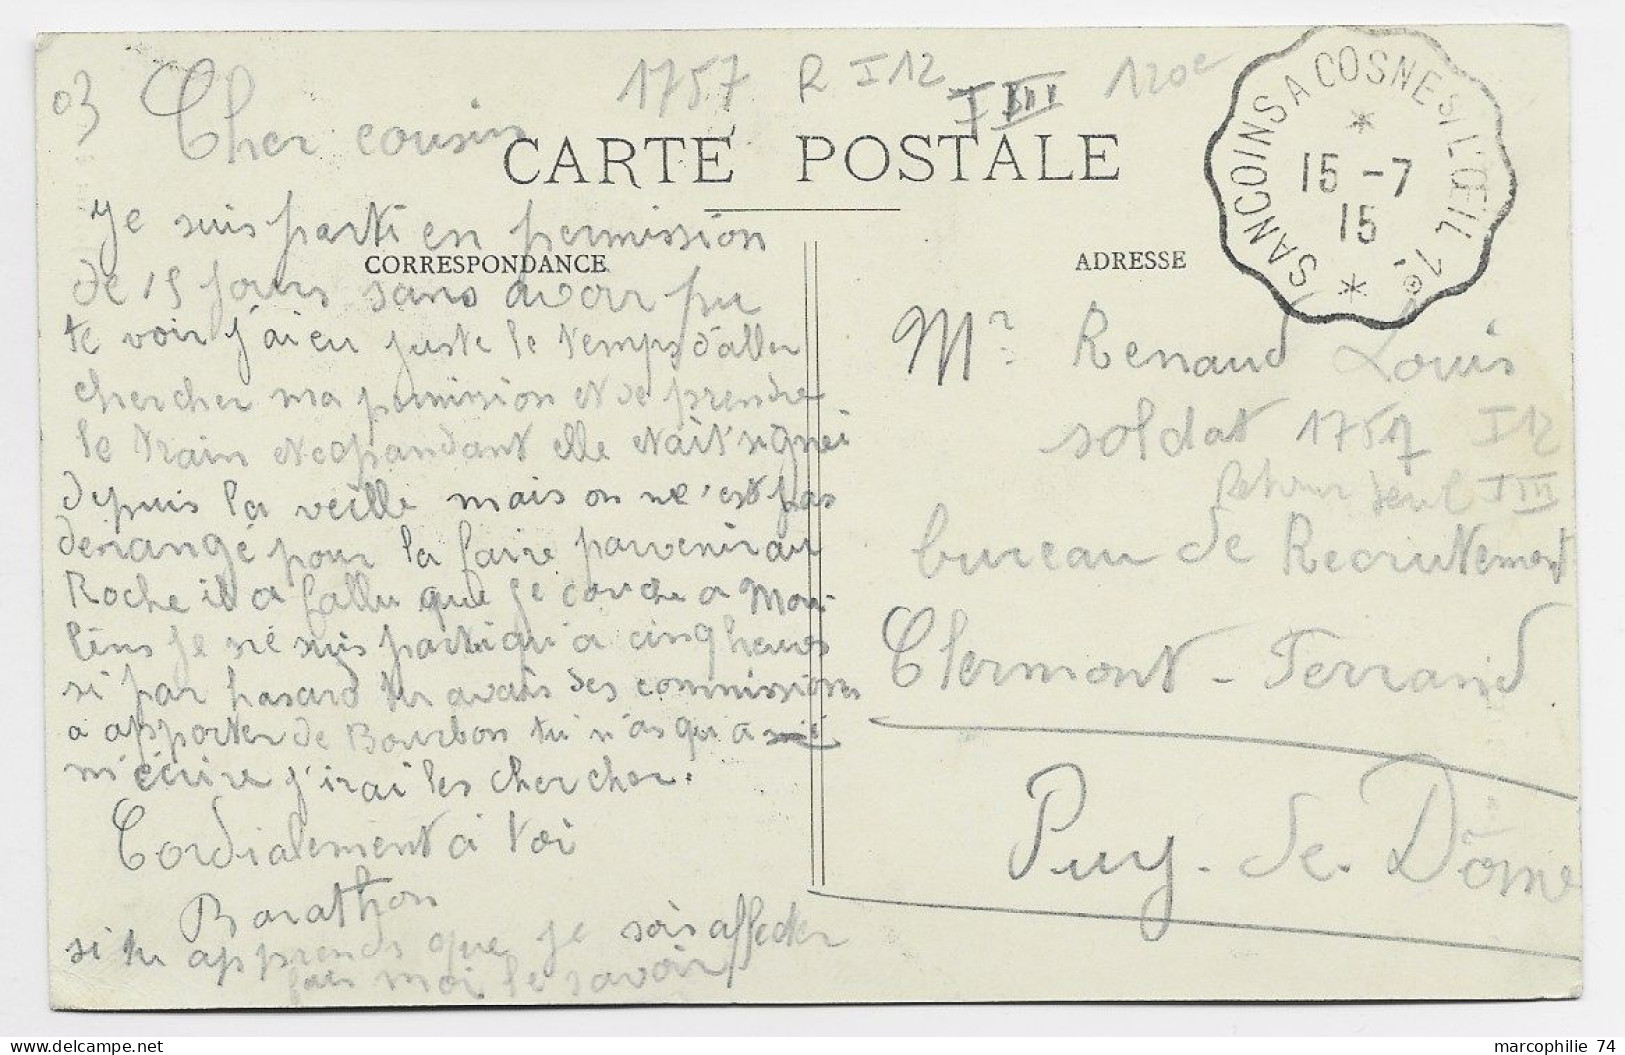 03
1757 R I 12 I III 120e
CARTE POSTALE
SANCOINS A COSNE S/L'ŒIL 1°
15 - 7
15
CORRESPONDANCE
ADRESSE
Cher cousin
Je suis parti en permission
de 15 jours sans avoir pu
te voir j'ai eu juste le temps d'aller
chercher ma permission et de prendre
le train et cependant elle était signée
depuis la veille mais on ne s'est pas
dérangé pour la faire parvenir au
Roche il a fallu que je couche a Mou-
lins je ne suis parti qu'a cinq heures
si par hasard tu avais des commissions
a apporter de Bourbon tu n'as qu'à
m'écrire j'irai les chercher.
Cordialement à toi
Barathon
si tu apprends que je sois affecter
fais moi le savoir
Mr Renaud Louis
soldat 1757 I 12
Retour seul I III
bureau de Recrutement
Clermont-Ferrand
Puy-de-Dôme
marcophilie 74